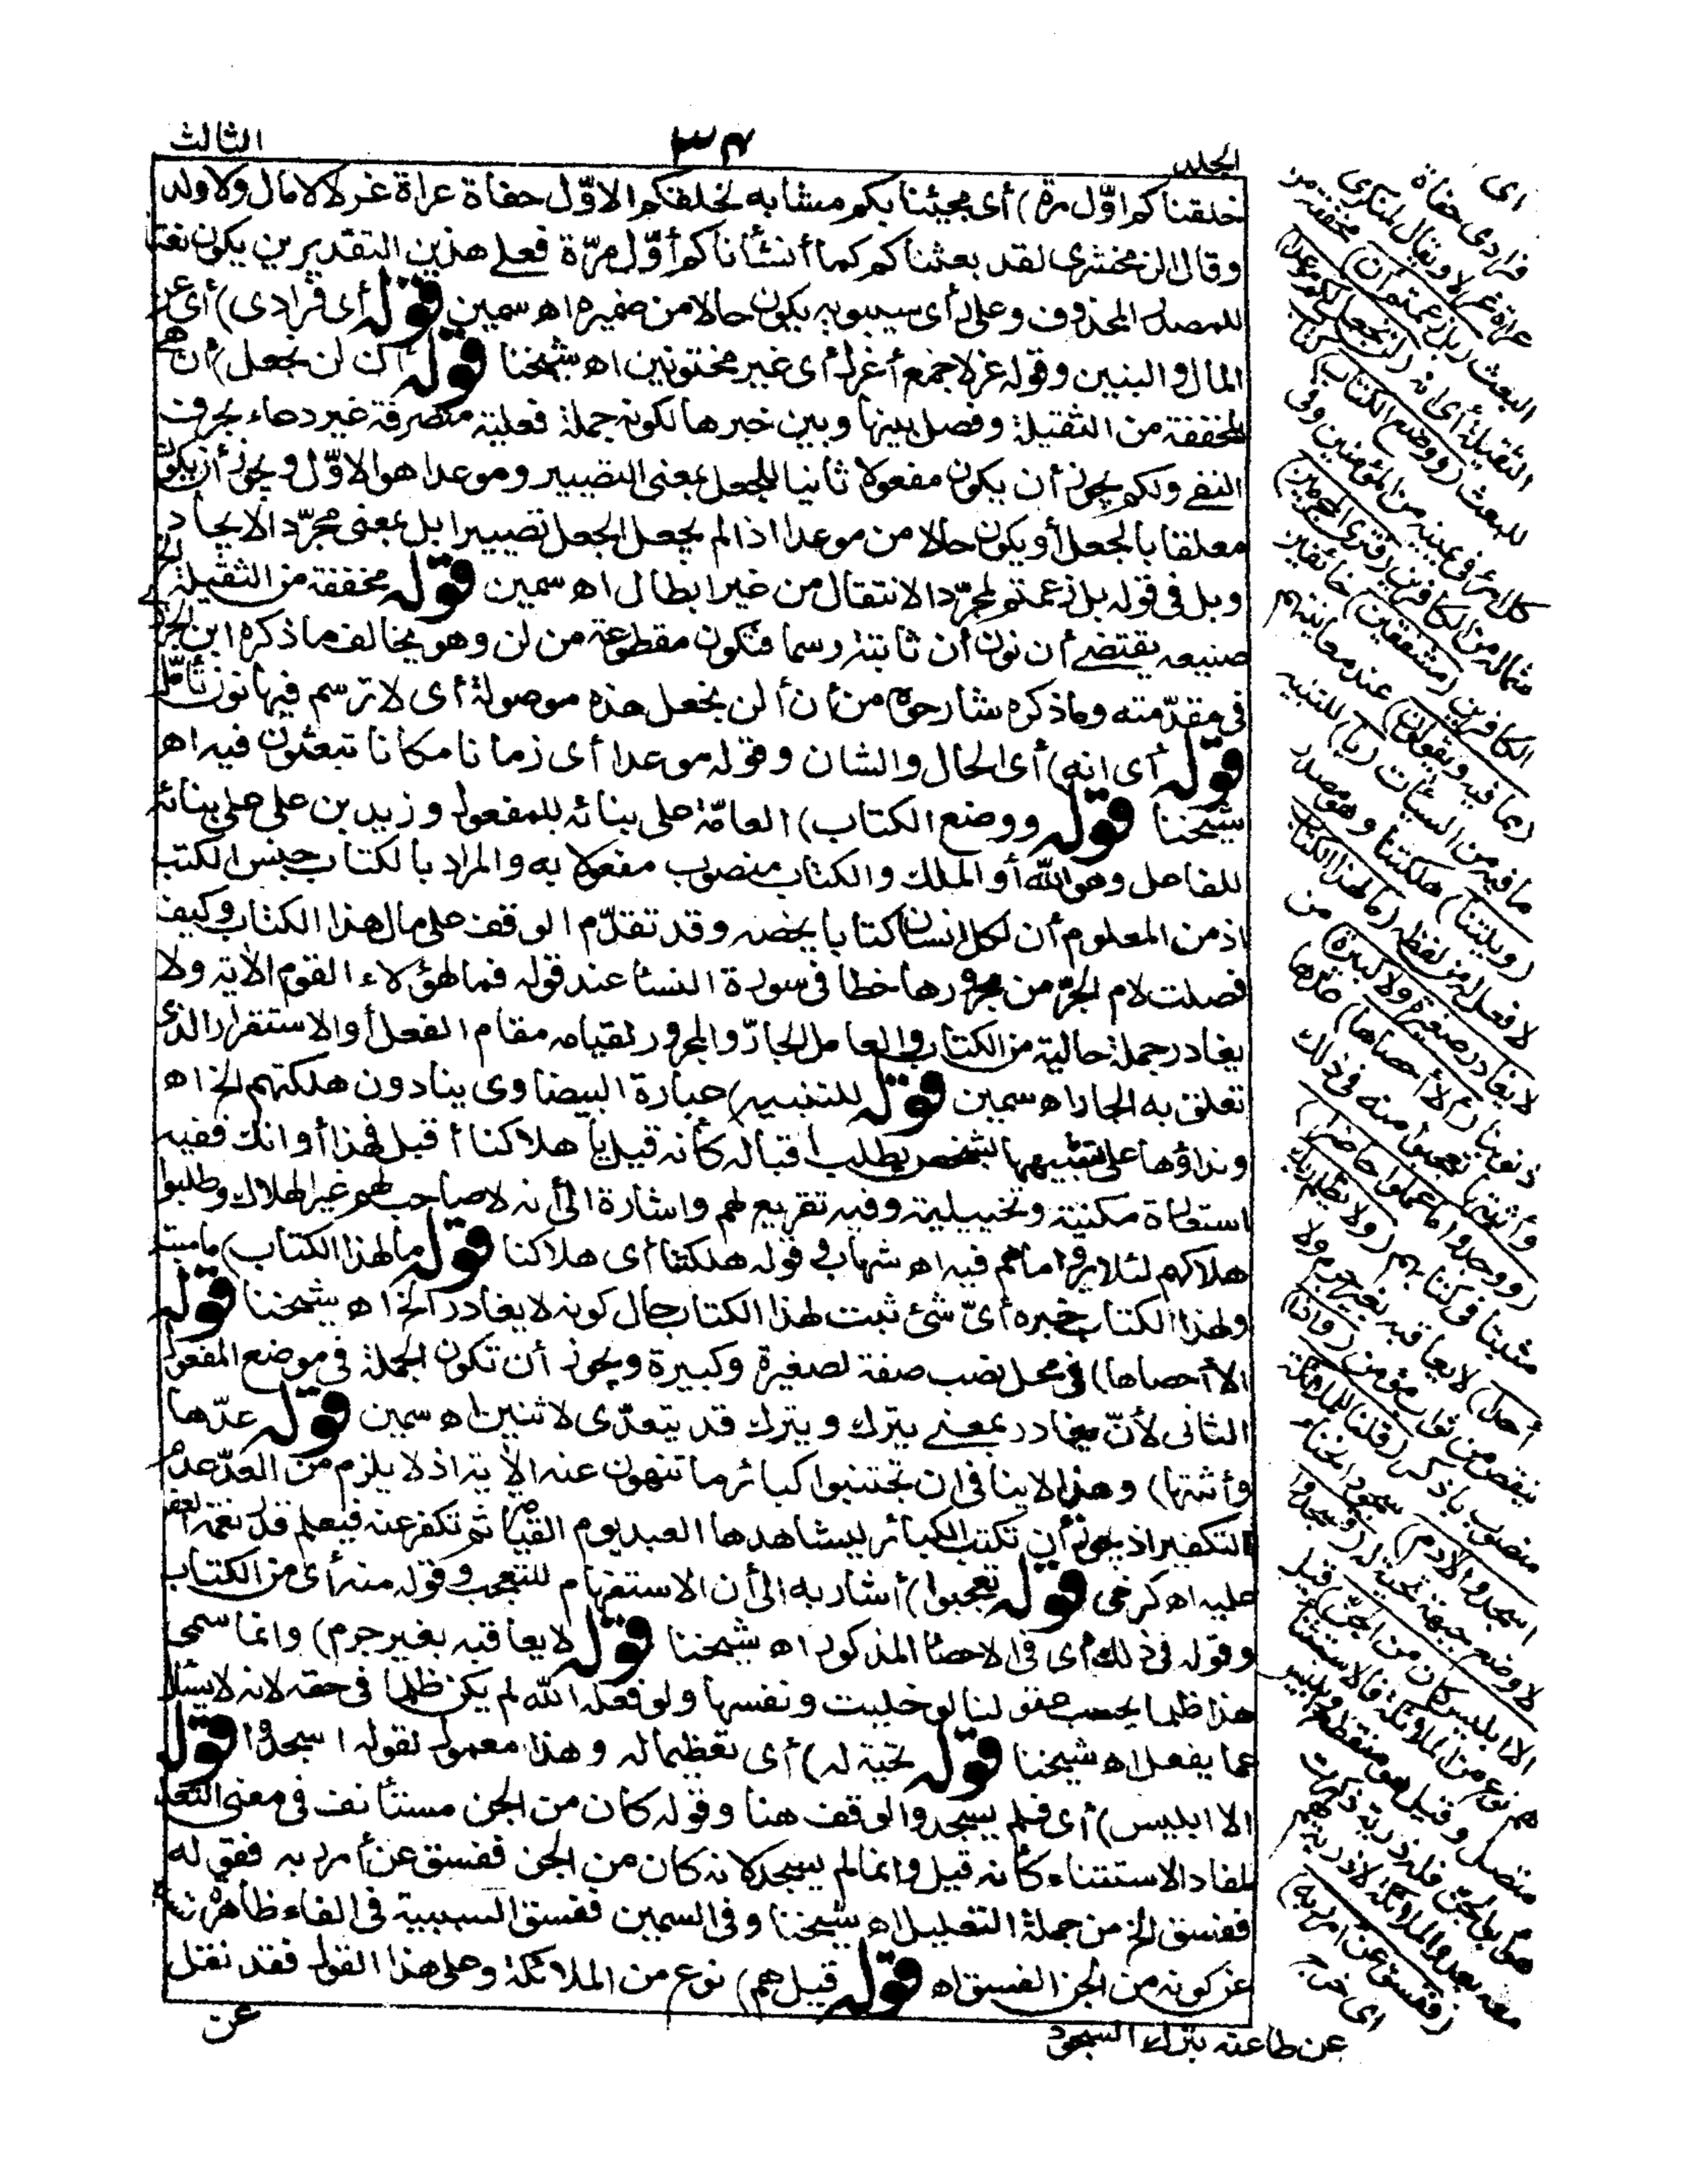 الجلد
٣٤
الثالث
خلقناكم اوّل مرة) أى مجيئنا بكم مشابه لخلقكم الاوّل حفاة عراة غرلا لا مال ولا ولد
وقال الزمخشرى لقد بعثناكم كما أنشأناكم أوّل مرّة فعلى هذين التقديرين يكون نعتا
للمصدر المحذوف وعلى رأى سيبويه يكون حالا من ضميره اه سمين قوله أى فرادى) أى عن
المال والبنين وقوله غرلا جمع أغرل أى غير مختونين اه شيخنا قوله أن لن نجعل) أن هى
المخففة من الثقيلة وفصل بينها وبين خبرها لكونه جملة فعلية متصرفة غير دعاء بحرف
النفى ولكم يجوز أن يكون مفعولا ثانيا للجعل بمعنى التصيير وموعدا هو الاوّل ويجوز أن يكون
معلقا بالجعل أو يكون حالا من موعدا اذا لم يجعل الجعل تصييرا بل بمعنى مجرّد الايجاد
وبل فى قوله بل زعمتم لمجرّد الانتقال من غير ابطال اه سمين قوله مخففة من الثقيلة الخ
صنيعه يقتضى أن نون أن ثابتة رسما فتكون مقطوعة من لن وهو يخالف ما ذكره ابن الجزرى
فى مقدّمته وما ذكره شارحوه من أن ألن نجعل هذه موصولة أى لا ترسم فيها نون تأمّل
قوله أى انه) أى الحال والشان وقوله موعدا أى زمانا مكانا تبعثون فيه اه
شيخنا قوله ووضع الكتاب) العامّة على بنائه للمفعول وزيد بن على على بنائه
للفاعل وهو الله أو الملك والكتاب منصوب مفعولا به والمراد بالكتاب جنس الكتب
اذ من المعلوم أن لكل انسان كتابا يخصه وقد تقدّم الوقف على مال هذا الكتاب وكيف
فصلت لام الجرّ من مجرورها خطا فى سورة النسا عند قوله فما لهؤلاء القوم الآية ولا
يغادر جملة حالية من الكتاب والعامل الجارّ والمجرور لقيامه مقام الفعل أو الاستقرار الذى
تعلق به الجار اه سمين قوله للتنبيه) عبارة البيضاوى ينادون هلكتهم الخ اه
ونداؤها على تشبيهها بشخص يطلب اقباله كأنه قيل يا هلاكنا أقبل فهذا أوانك ففيه
استعارة مكنية وتخييلية وفيه تقريع لهم واشارة الى أنه لا صاحب لهم غير الهلاك وطلبوا
هلاكهم لئلا يروا ما هم فيه اه شهاب فى قوله هلكتنا أى هلاكنا قوله مالهذا الكتاب) ما مبتدأ
ولهذا الكتاب خبره أى أىّ شئ ثبت لهذا الكتاب حال كونه لا يغادر الخ اه شيخنا قوله
الا أحصاها) فى محل نصب صفة لصغيرة وكبيرة ويجوز أن تكون الجملة فى موضع المفعول
الثانى لأنّ يغادر بمعنى يترك ويترك قد يتعدّى لاثنين اه سمين قوله عدّها
وأثبتها) وهذا لا ينافى ان تجتنبوا كبائر ما تنهون عنه الآية اذ لا يلزم من العدّ عدم
التكفير اذ يجوز أن تكتب الكبائر ليشاهدها العبد يوم القيامة ثم تكفر عنه فيعلم قدر نعمة العفو
عليه اه كرخى قوله تعجبوا) أشار به الى أن الاستفهام للتعجب وقوله منه أى من الكتاب
وقوله فى ذلك أى فى الاحصا المذكور اه شيخنا قوله لا يعاقبه بغير جرم) وانما سمى
هذا ظلما بحسب عقولنا لو خليت ونفسها ولو فعله الله لم يكن ظلما فى حقه لانه لا يسئل
عما يفعل اه شيخنا قوله تحية له) أى تعظيما له وهذا معمول لقوله اسجدوا قوله
الا ابليس) أى فلم يسجد والوقف هنا وقوله كان من الجن مستأنف فى معنى التعليل
لمفاد الاستثناء كأنه قيل وانما لم يسجد لانه كان من الجن ففسق عن أمر ربه فقوله
ففسق الخ من جملة التعليل اه شيخنا وفى السمين ففسق السببية فى الفاء ظاهرة
عن كونه من الجن الفسق اه قوله قيل هم) نوع من الملائكة وعلى هذا القول فقد نقل
عن
اى
فرادى حفاة
عراة غرلا ويقال لمنكرى
البعث (بل زعمتم ان) مخففة من
الثقيلة أى انه (لن نجعل لكم موعدا)
للبعث (ووضع الكتاب) كتاب
كل امرئ فى يمينه من المؤمنين وفى
شماله من الكافرين (فترى المجرمين)
الكافرين (مشفقين) خائفين
(مما فيه ويقولون) عند معاينتهم
ما فيه من السيئات (يا) للتنبيه
(ويلتنا) هلكتنا وهو مصدر
لا فعل له من لفظه (مالهذا الكتاب
لا يغادر صغيرة ولا كبيرة) من
ذنوبنا (الا أحصاها) عدّها
وأثبتها تعجبوا منه فى ذلك
(ووجدوا ما عملوا حاضرا)
مثبتا فى كتابهم (ولا يظلم ربك
أحدا) لا يعاقبه بغير جرم ولا
ينقص من ثواب مؤمن (واذ)
منصوب باذكر (قلنا للملائكة
اسجدوا لادم) سجود انحناء
لا وضع جبهة تحية له (فسجدوا
الا ابليس كان من الجن) قيل
هم نوع من الملائكة فالاستثناء
متصل وقيل هو منقطع وابليس
هو أبو الجن فله ذرية ذكرت
معه بعد والملائكة لا ذرية لهم
(ففسق عن أمر ربه)
اى خرج
عن طاعته بترك السجود